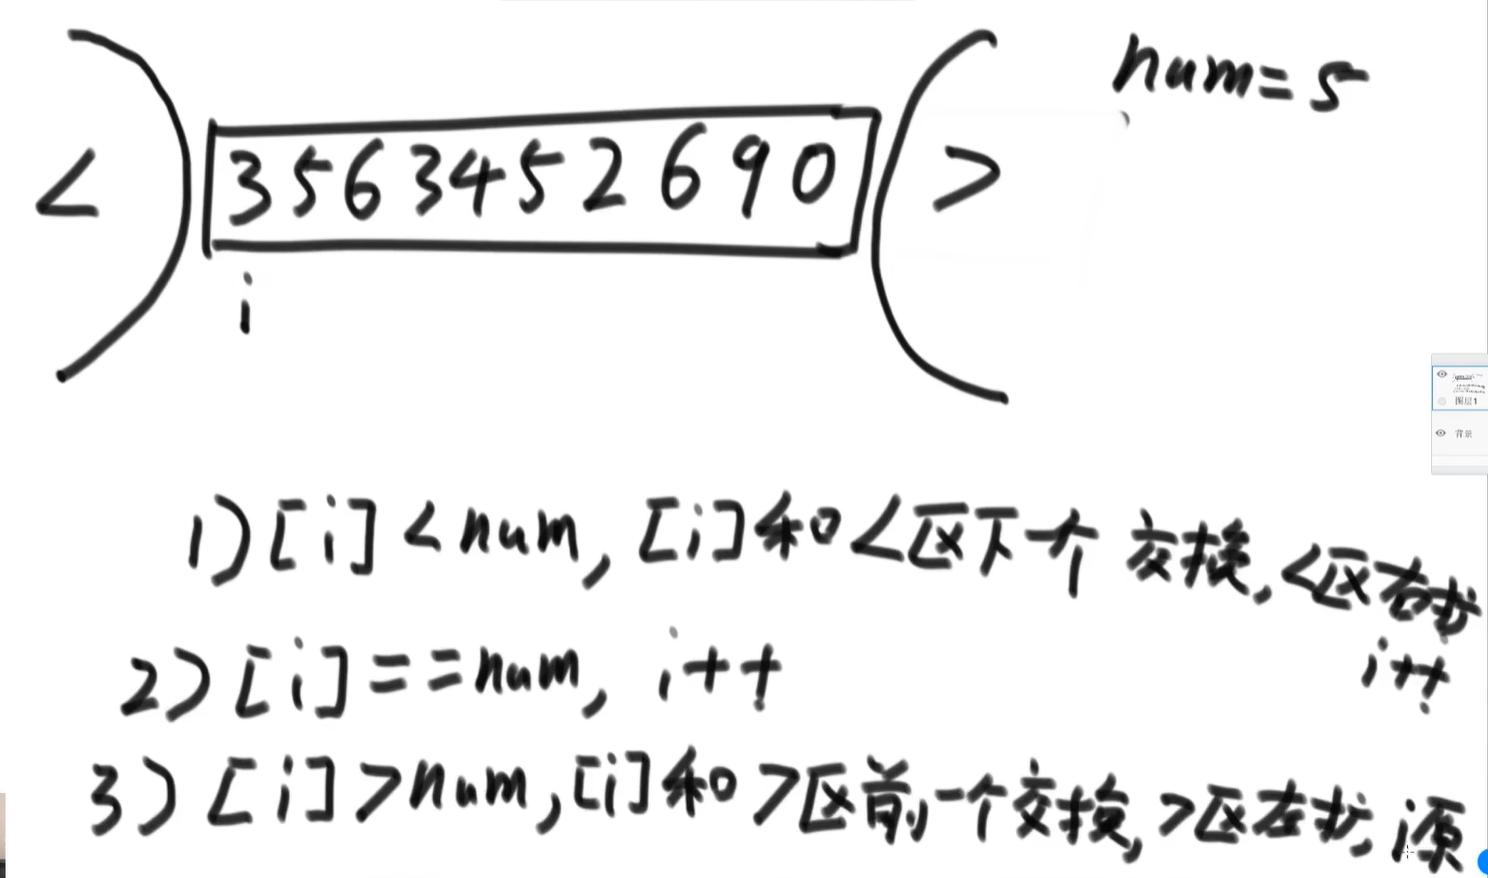 num=5
< 3 5 6 3 4 5 2 6 9 0 >
i
图层1
背景
1) [i] < num, [i]和<区下一个 交换, <区右扩
i++
2) [i] == num, i++
3) [i] > num, [i]和 >区前一个交换, >区左扩, i原